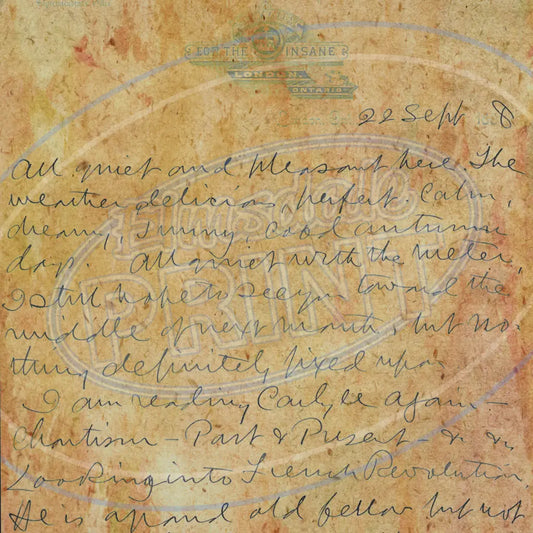 FOR THE INSANE
LONDON.
ONTARIO.
22 Sept 8
All quiet and pleasant here. The
weather delicious, perfect. Calm,
dreamy, sunny, cool autumn
days. All quiet with the meter,
I still hope to see you toward the
middle of next month, but no-
thing definitely fixed upon
I am reading Carlyle again —
Chartism — Past & Present — & &c
Looking into French Revolution.
He is a grand old fellow but not
Elmsdale
PRINT